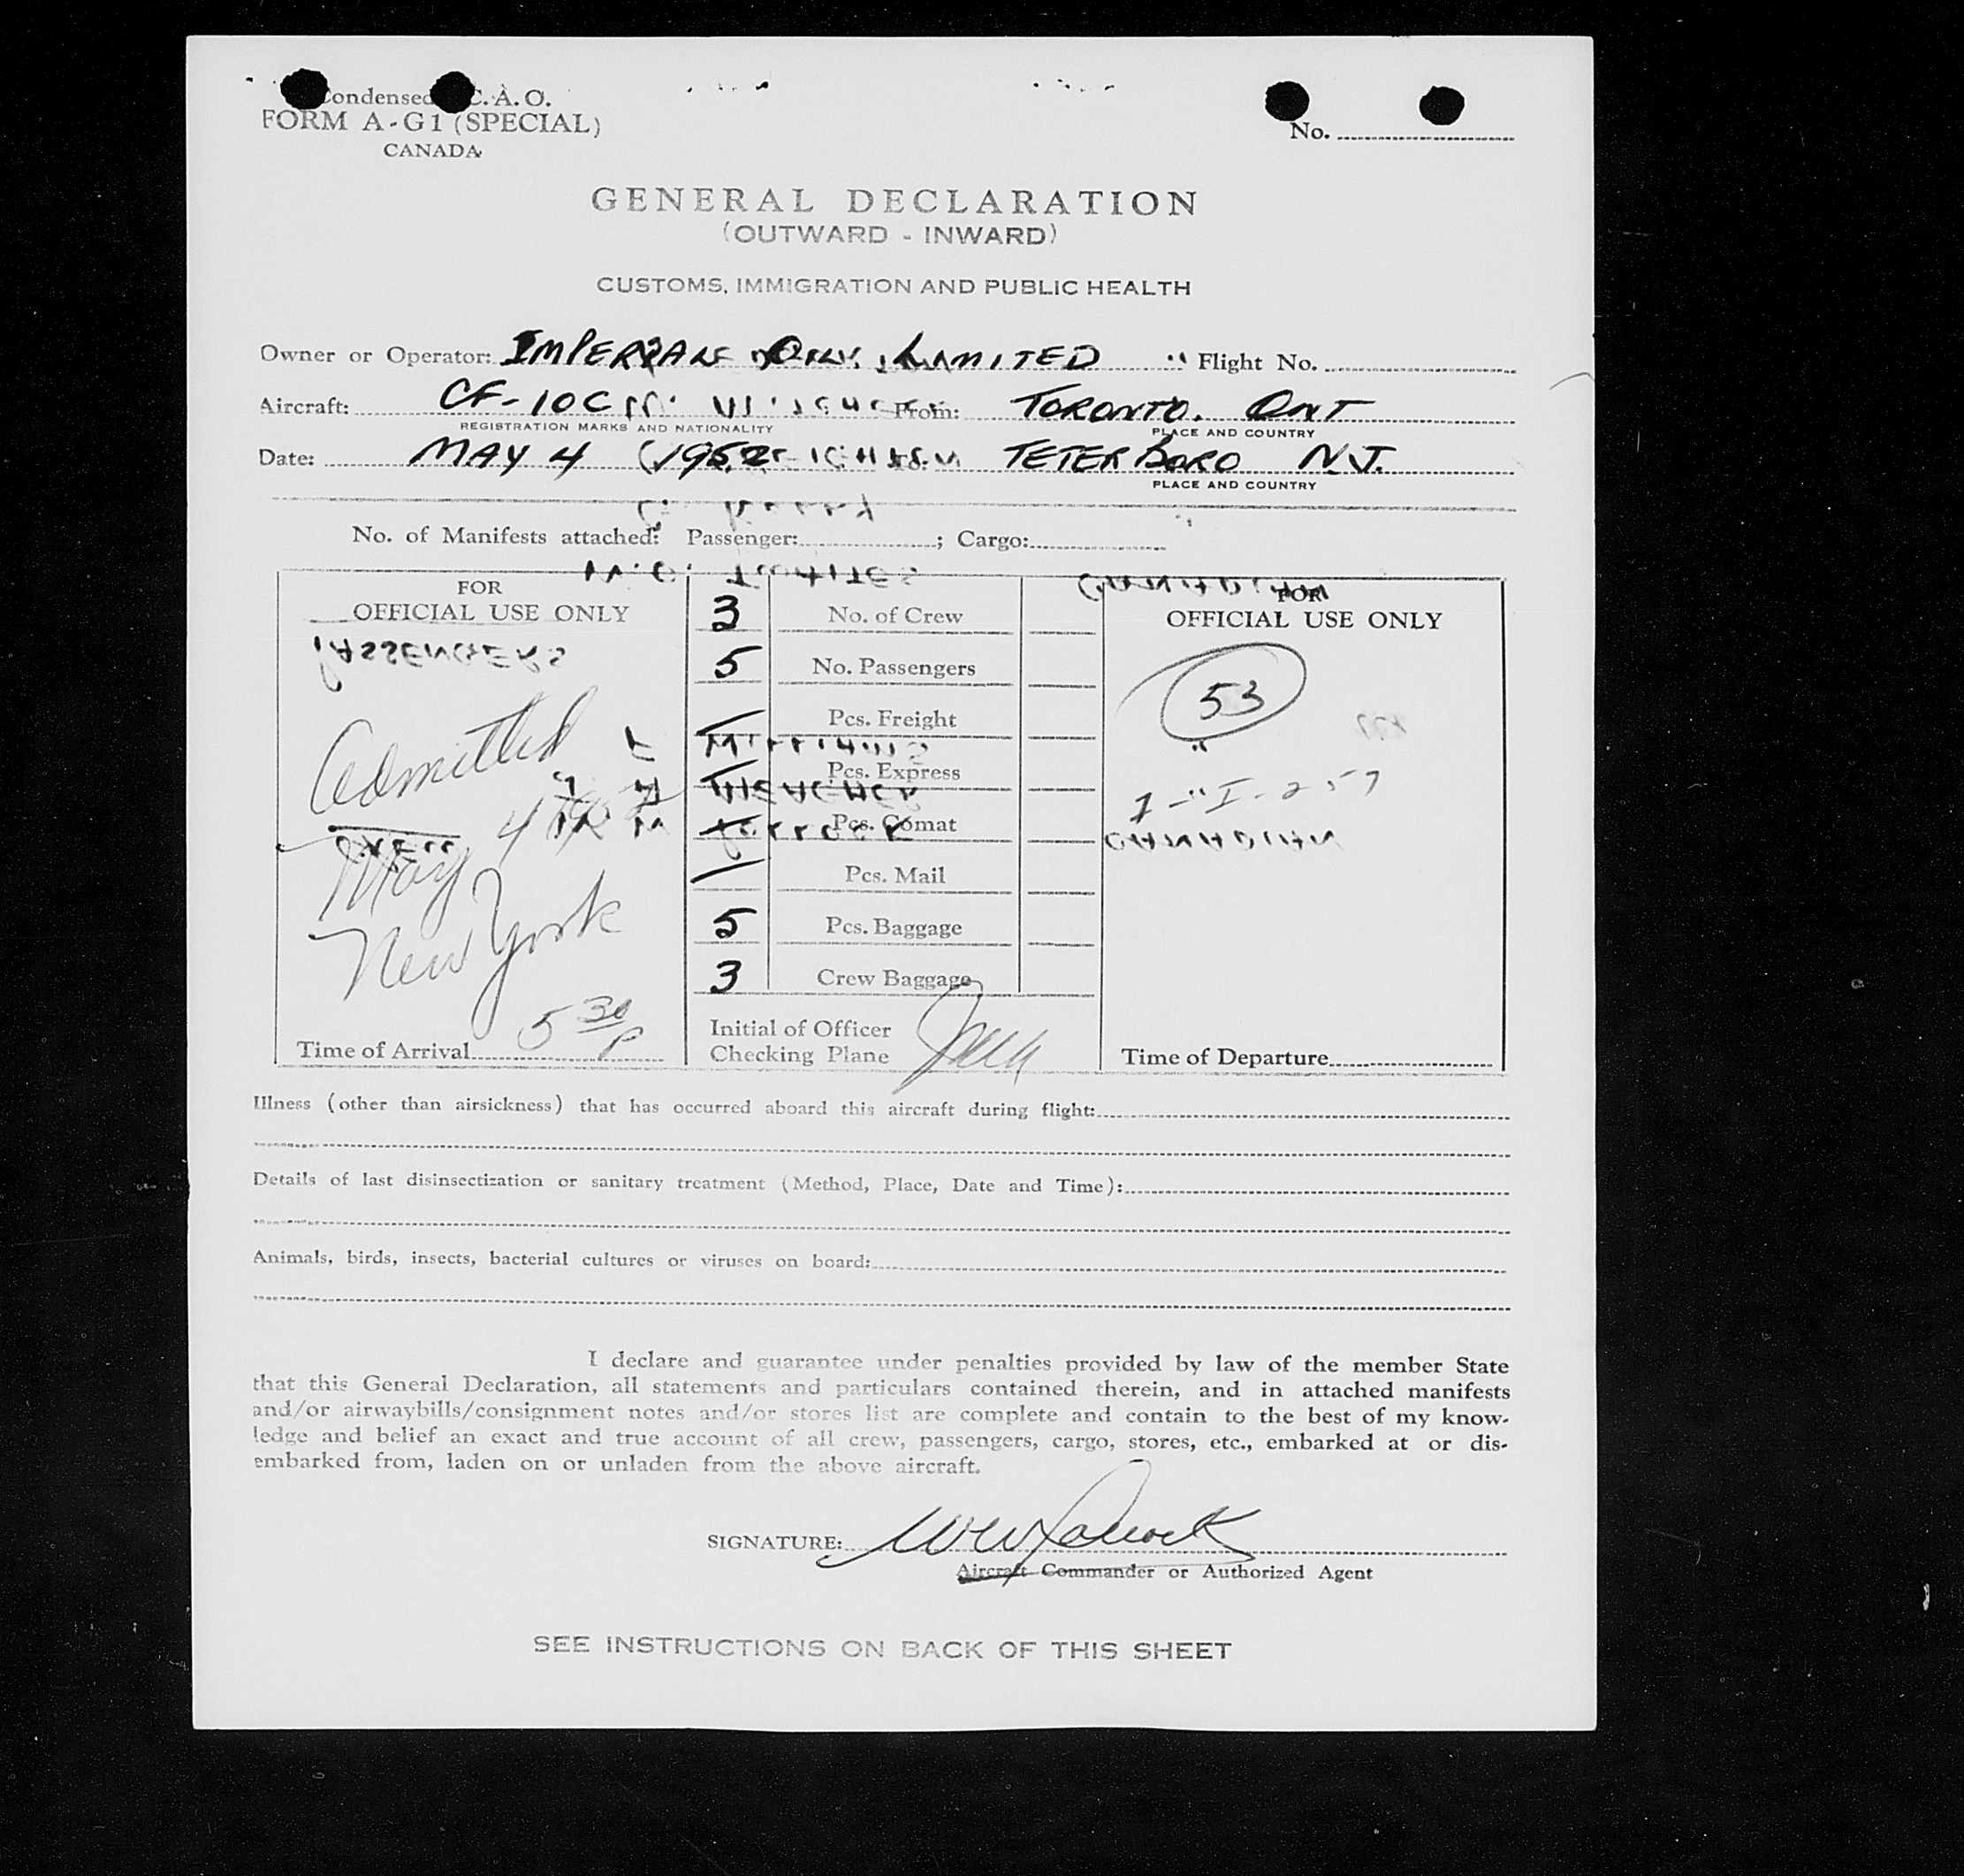 Condensed C.A.O.
FORM A-G1 (SPECIAL)
CANADA
No.
GENERAL DECLARATION
(OUTWARD - INWARD)
CUSTOMS, IMMIGRATION AND PUBLIC HEALTH
Owner or Operator: IMPERIAL OIL LIMITED Flight No.
Aircraft: CF-IOC From: TORONTO. ONT
REGISTRATION MARKS AND NATIONALITY PLACE AND COUNTRY
Date: MAY 4 1952 To: TETERBORO N.J.
PLACE AND COUNTRY
No. of Manifests attached: Passenger: ; Cargo:
FOR
OFFICIAL USE ONLY
PASSENGERS
Admitted
4
CREW
May
New York
5 30 P
Time of Arrival
3 No. of Crew
5 No. Passengers
— Pcs. Freight
— Pcs. Express
— Pcs. Comat
— Pcs. Mail
5 Pcs. Baggage
3 Crew Baggage
Initial of Officer
Checking Plane
CANADIAN
FOR
OFFICIAL USE ONLY
53
"
CANADIAN
Time of Departure
Illness (other than airsickness) that has occurred aboard this aircraft during flight:
Details of last disinsectization or sanitary treatment (Method, Place, Date and Time):
Animals, birds, insects, bacterial cultures or viruses on board:
I declare and guarantee under penalties provided by law of the member State
that this General Declaration, all statements and particulars contained therein, and in attached manifests
and/or airwaybills/consignment notes and/or stores list are complete and contain to the best of my know-
ledge and belief an exact and true account of all crew, passengers, cargo, stores, etc., embarked at or dis-
embarked from, laden on or unladen from the above aircraft.
SIGNATURE:
Aircraft Commander or Authorized Agent
SEE INSTRUCTIONS ON BACK OF THIS SHEET